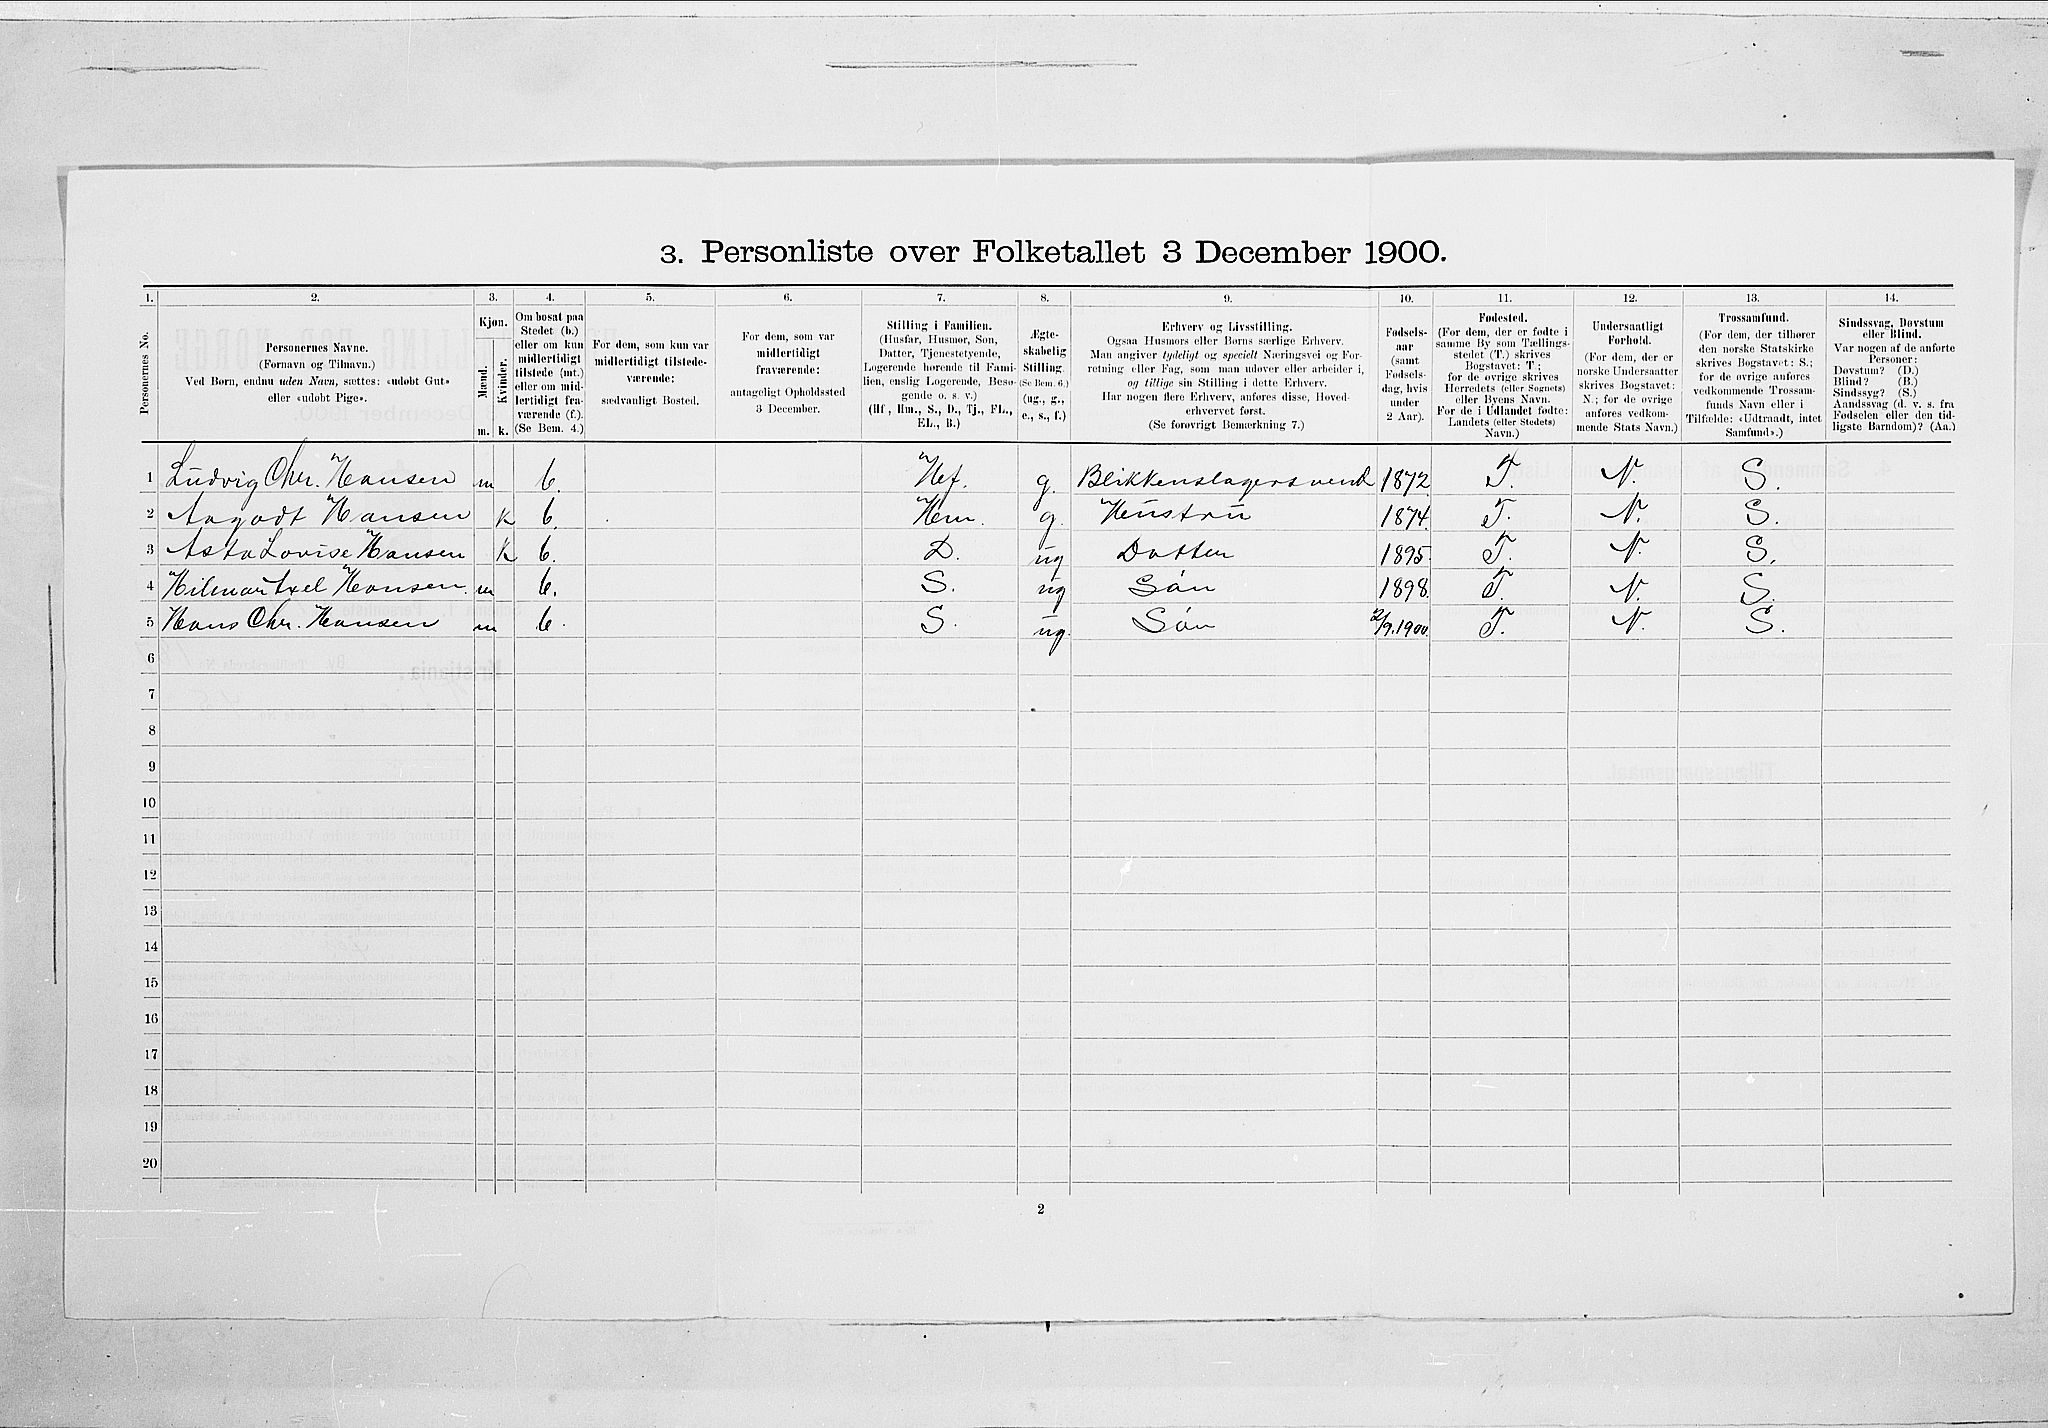 3. Personliste over Folketallet 3 December 1900.
1. 2. 3. 4. 5. 6. 7. 8. 9. 10. 11. 12. 13. 14.
Personernes No.
Personernes Navne.
(Fornavn og Tilnavn.)
Ved Børn, endnu uden Navn, sættes: «udøbt Gut»
eller «udøbt Pige».
Kjøn.
Mænd.
Kvinder.
m. k.
Om bosat paa
Stedet (b.)
eller om kun
midlertidigt
tilstede (mt.)
eller om mid-
lertidigt fra-
værende (f.).
(Se Bem. 4.)
For dem, som kun var
midlertidigt tilstede-
værende:
sædvanligt Bosted.
For dem, som var
midlertidigt
fraværende:
antageligt Opholdssted
3 December.
Stilling i Familien.
(Husfar, Husmor, Søn,
Datter, Tjenestetyende,
Logerende hørende til Fami-
lien, enslig Logerende, Besø-
gende o. s. v.)
(Hf., Hm., S., D., Tj., FL.,
EL., B.)
Ægte-
skabelig
Stilling.
(Se Bem. 6.)
(ug., g.,
e., s., f.)
Erhverv og Livsstilling.
Ogsaa Husmors eller Børns særlige Erhverv.
Man angiver tydeligt og specielt Næringsvei og For-
retning eller Fag, som man udøver eller arbeider i,
og tillige sin Stilling i dette Erhverv.
Har nogen flere Erhverv, anføres disse, Hoved-
erhvervet først.
(Se forøvrigt Bemærkning 7.)
Fødsels-
aar
(samt
Fødsels-
dag, hvis
under
2 Aar).
Fødested.
(For dem, der er fødte i
samme By som Tællings-
stedet (T.) skrives
Bogstavet: T;
for de øvrige skrives
Herredets (eller Sognets)
eller Byens Navn.
For de i Udlandet fødte:
Landets (eller Stedets)
Navn.)
Undersaatligt
Forhold.
(For dem, der er
norske Undersaatter
skrives Bogstavet:
N.; for de øvrige
anføres vedkom-
mende Stats Navn.)
Trossamfund.
(For dem, der tilhører
den norske Statskirke
skrives Bogstavet: S.;
for de øvrige anføres
vedkommende Trossam-
funds Navn eller i
Tilfælde: «Udtraadt, intet
Samfund».)
Sindssvag, Døvstum
eller Blind.
Var nogen af de anførte
Personer:
Døvstum? (D.)
Blind? (B.)
Sindssyg? (S.)
Aandssvag (d. v. s. fra
Fødselen eller den tid-
ligste Barndom)? (Aa.)
1 Ludvig Chr. Hansen m b. Hf. g. Blikkenslagersvend 1872. T. N. S.
2 Aagodt Hansen k b. Hm. g. Hustru 1874. T. N. S.
3 Asta Lovise Hansen k b. D. ug Datter 1895. T. N. S.
4 Hilmar Axel Hansen. m b. S. ug Søn 1898. T. N. S.
5 Hans Chr. Hansen m b. S. ug. Søn 2/9.1900. T. N. S.
6
7
8
9
10
11
12
13
14
15
16
17
18
19
20
2